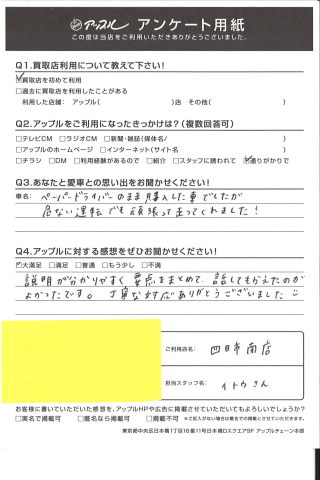 アップル アンケート用紙
この度は当店をご利用いただきありがとうございました。
Q1.買取店利用について教えて下さい!
☑買取店を初めて利用
□過去に買取店を利用したことがある
利用した店舗： アップル( )店 その他( )
Q2.アップルをご利用になったきっかけは?(複数回答可)
□テレビCM □ラジオCM □新聞・雑誌(媒体名/ )
□アップルのホームページ □インターネット(サイト名 )
□チラシ □DM □利用経験があるので □紹介 □スタッフに誘われて ☑通りがかりで
Q3.あなたと愛車との思い出をお聞かせください!
車名： ペーパードライバーのまま購入した車でしたが
危ない運転でも頑張って走ってくれました!
Q4.アップルに対する感想をぜひお聞かせください!
☑大満足 □満足 □普通 □もう少し □不満
説明が分かりやすく要点をまとめて、話してもらえたのが
よかったです。丁寧な対応ありがとうございました
ご利用店名： 四日市南店
担当スタッフ名： イトウさん
お客様に書いていただいた感想を、アップルHPや広告に掲載させていただいてもよろしいでしょうか?
□実名で掲載可 □匿名なら掲載可 □掲載不可 ※ご記入がない場合は匿名での掲載とさせていただきます。
東京都中央区日本橋1丁目16番11号日本橋Dスクエア9F アップルチェーン本部